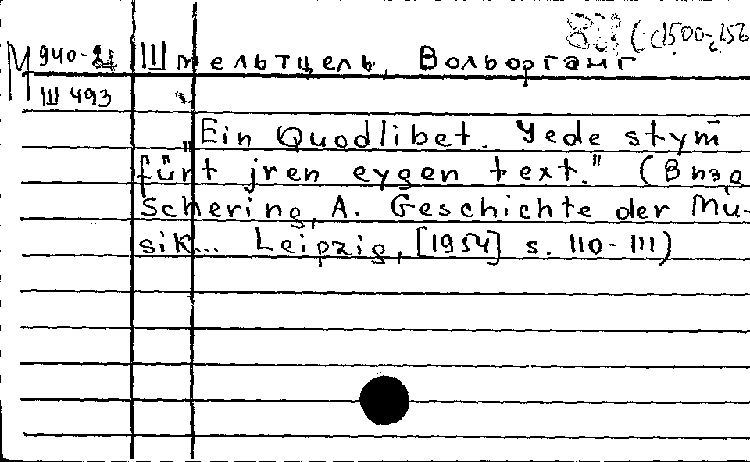 (c1500-c156
М 940-21 Штельтцель, Вольфганг
Ш 493
Ein Quodlibet. Yede stym̄
"fürt jren eygen text." (В изд
Schering, A. Geschichte der Mu-
sik... Leipzig, [1954] s. 110-111)